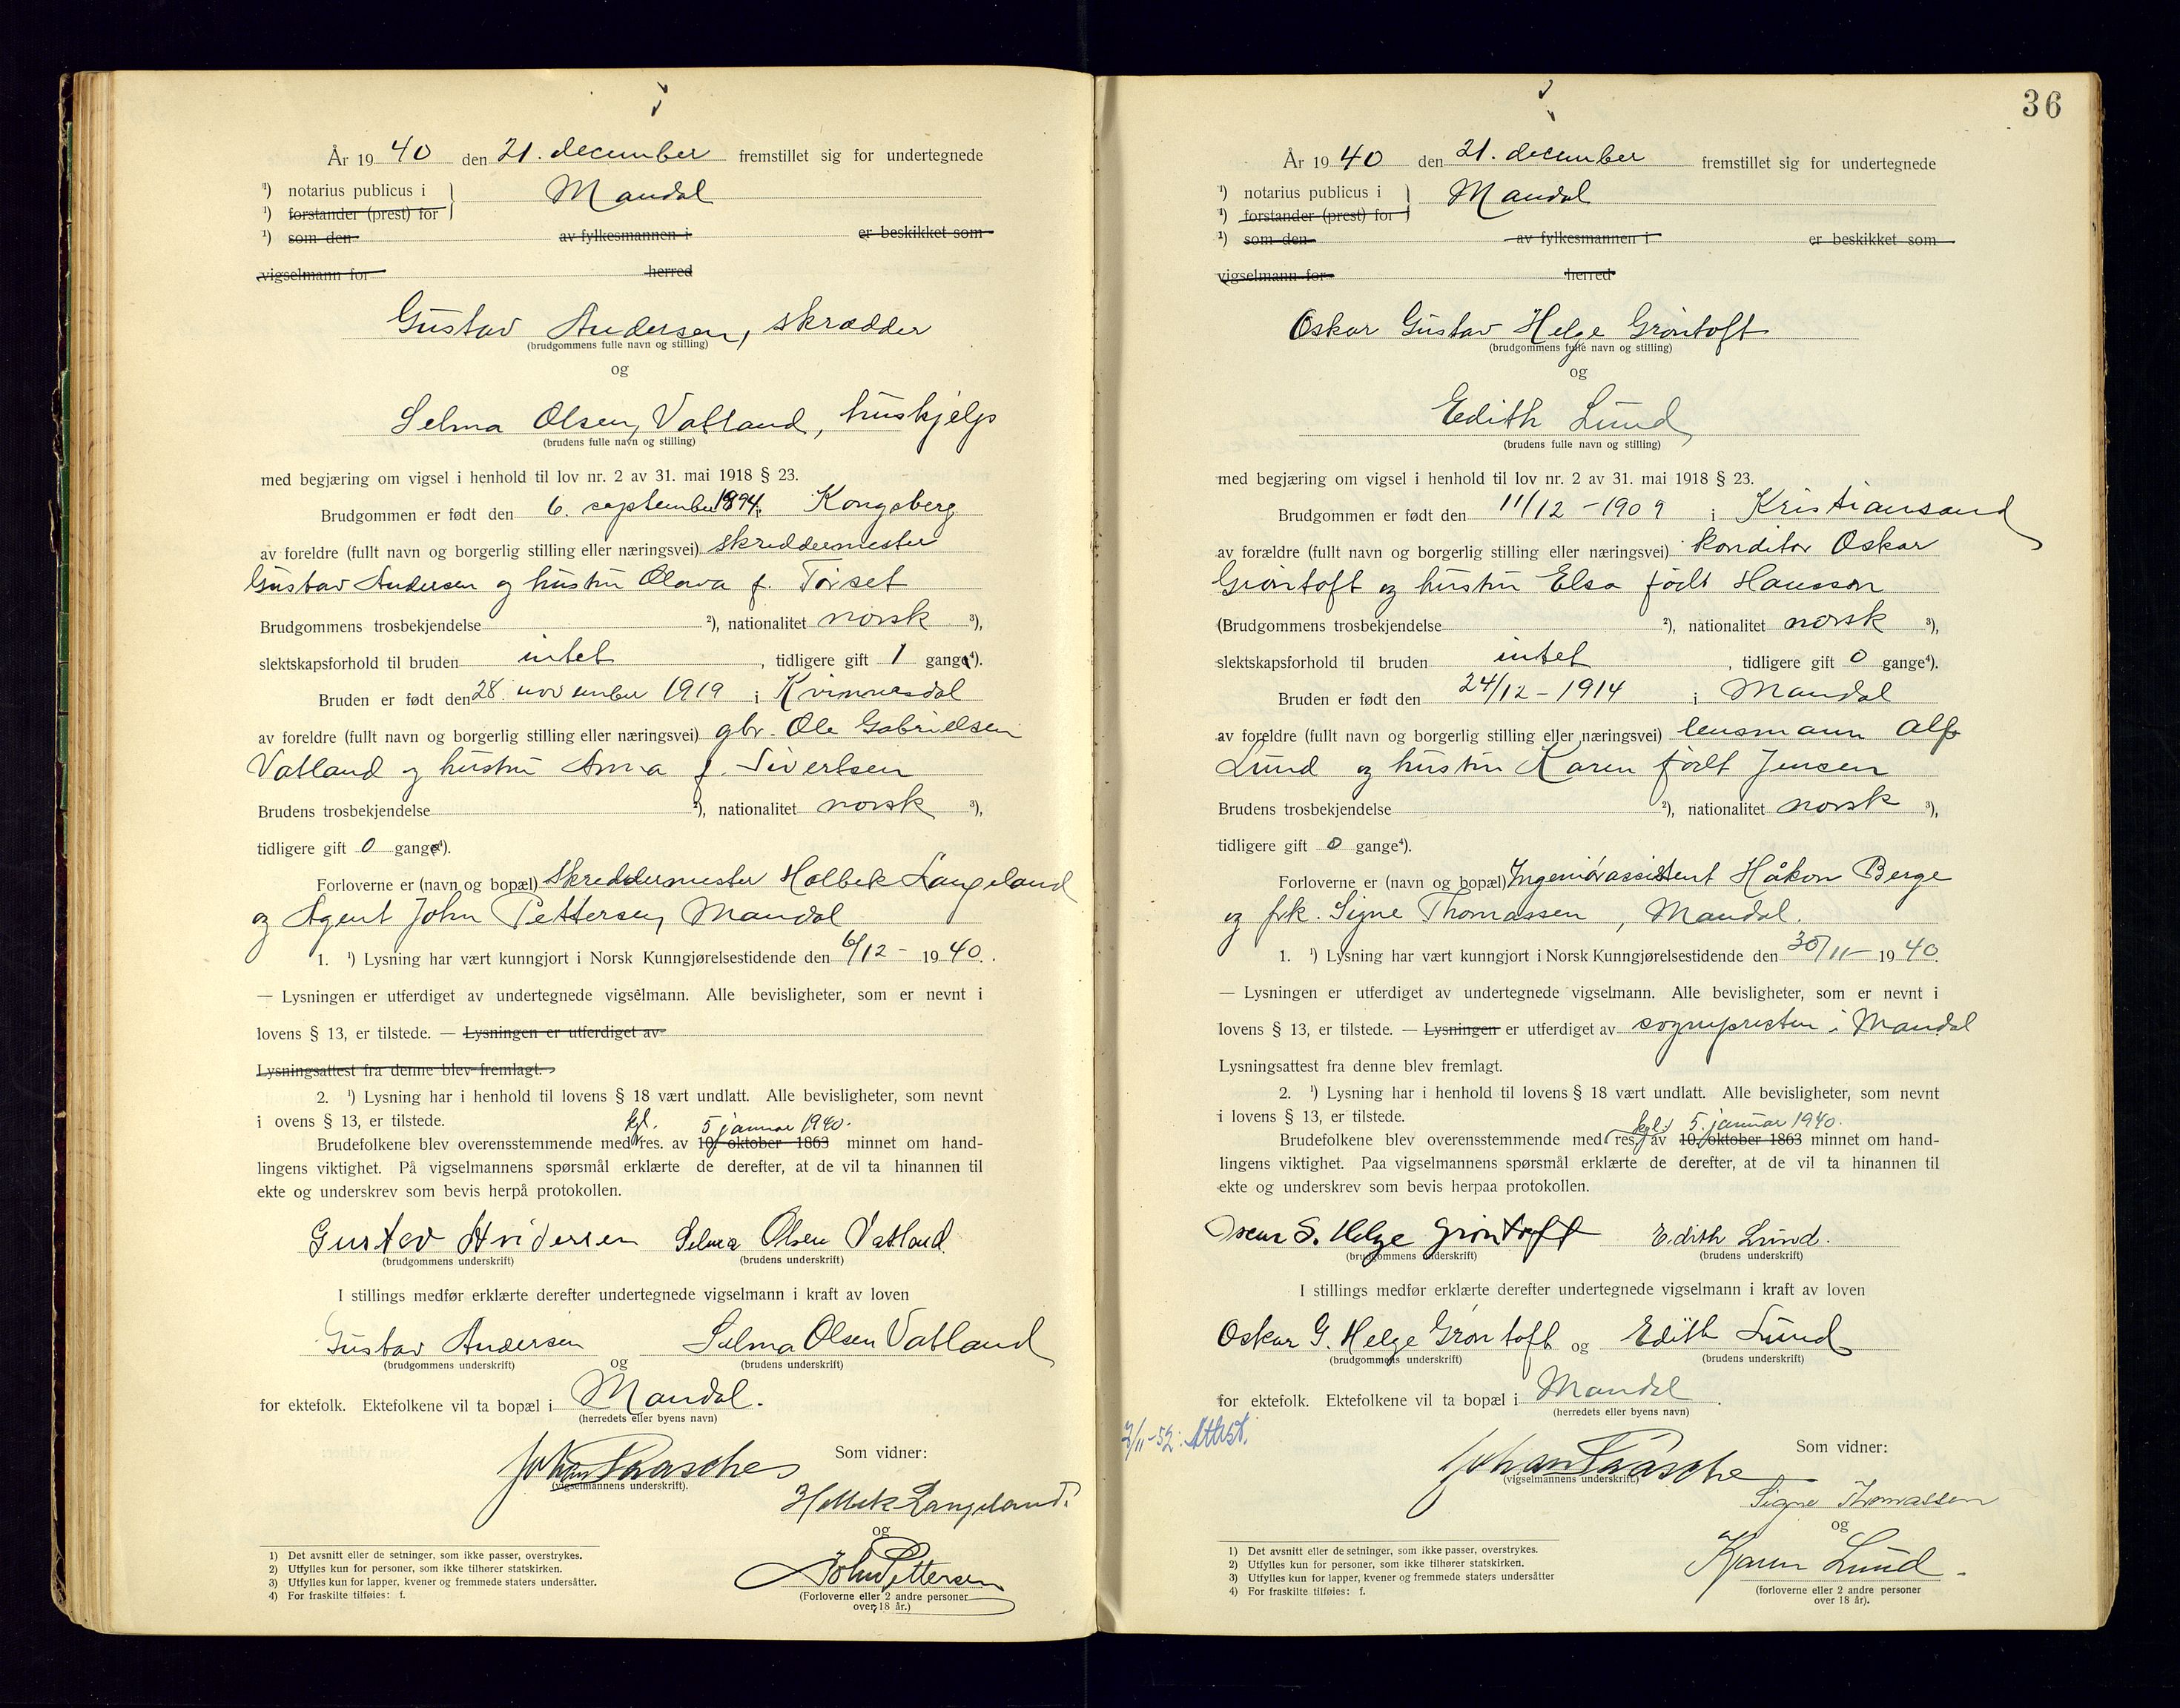 År 1940 den 21. december fremstillet sig for undertegnede
¹) notarius publicus i Mandal
¹) forstander (prest) for
¹) som den av fylkesmannen i er beskikket som
vigselmann for herred
Gustav Andersen, skrædder
(brudgommens fulle navn og stilling)
og
Selma Olsen Vatland, huskjelp
(brudens fulle navn og stilling)
med begjæring om vigsel i henhold til lov nr. 2 av 31. mai 1918 § 23.
Brudgommen er født den 6. september 1894 i Kongsberg
av foreldre (fullt navn og borgerlig stilling eller næringsvei) skreddermester
Gustav Andersen og hustru Olava f. Torset
Brudgommens trosbekjendelse ²), nationalitet norsk ³),
slektskapsforhold til bruden intet, tidligere gift 1 gang⁴).
Bruden er født den 28. november 1919 i Kvinnesdal
av foreldre (fullt navn og borgerlig stilling eller næringsvei) gbr. Ole Gabrielsen
Vatland og hustru Anna f. Sivertsen
Brudens trosbekjendelse ²), nationalitet norsk ³),
tidligere gift 0 gange⁴).
Forloverne er (navn og bopæl) Skreddermester Holbek Langeland
og Agent John Pettersen, Mandal
1. ¹) Lysning har vært kunngjort i Norsk Kunngjørelsestidende den 6/12 - 1940.
— Lysningen er utferdiget av undertegnede vigselmann. Alle bevisligheter, som er nevnt i
lovens § 13, er tilstede. — Lysningen er utferdiget av
Lysningsattest fra denne blev fremlagt.
2. ¹) Lysning har i henhold til lovens § 18 vært undlatt. Alle bevisligheter, som nevnt
i ovens § 13, er tilstede.
kgl. 5 januar 1940.
Brudefolkene blev overensstemmende med res. av 10. oktober 1863 minnet om hand-
lingens viktighet. På vigselmannens spørsmål erklærte de derefter, at de vil ta hinannen til
ekte og underskrev som bevis herpå protokollen.
Gustav Andersen Selma Olsen Vatland
(brudgommens underskrift) (brudens underskrift)
I stillings medfør erklærte derefter undertegnede vigselmann i kraft av loven
Gustav Andersen og Selma Olsen Vatland
(brudgommens underskrift) (brudens underskrift)
for ektefolk. Ektefolkene vil ta bopæl i Mandal.
(herredets eller byens navn)
Johan Paasche
(vigselmannens underskrift).
Som vidner:
Holbek Langeland.
og
John Pettersen
(Forloverne eller 2 andre personer
over 18 år.)
1) Det avsnitt eller de setninger, som ikke passer, overstrykes.
2) Utfylles kun for personer, som ikke tilhører statskirken.
3) Utfylles kun for lapper, kvener og fremmede staters undersåtter.
4) For fraskilte tilføies: f.
36
År 1940 den 21. december fremstillet sig for undertegnede
¹) notarius publicus i Mandal
¹) forstander (prest) for
¹) som den av fylkesmannen i er beskikket som
vigselmann for herred
Oskar Gustav Helge Grøntoft
(brudgommens fulle navn og stilling)
og
Edith Lund
(brudens fulle navn og stilling)
med begjæring om vigsel i henhold til lov nr. 2 av 31. mai 1918 § 23.
Brudgommen er født den 11/12 - 1909 i Kristiansand
av forældre (fullt navn og borgerlig stilling eller næringsvei) konditor Oskar
Grøntoft og hustru Elsa født Hansson
(Brudgommens trosbekjendelse ²), nationalitet norsk ³),
slektskapsforhold til bruden intet, tidligere gift 0 gange⁴).
Bruden er født den 24/12 - 1914 i Mandal
av foreldre (fullt navn og borgerlig stilling eller næringsvei) lensmann Alf
Lund og hustru Karen født Jensen
Brudens trosbekjendelse ²), nationalitet norsk ³),
tidligere gift 0 gange⁴).
Forloverne er (navn og bopæl) Ingeniørassistent Håkon Berge
og frk. Signe Thomassen, Mandal.
1. ¹) Lysning har vært kunngjort i Norsk Kunngjørelsestidende den 30/11 - 1940.
— Lysningen er utferdiget av undertegnede vigselmann. Alle bevisligheter, som er nevnt i
lovens § 13, er tilstede. — Lysningen er utferdiget av sognepresten i Mandal
Lysningsattest fra denne blev fremlagt.
2. ¹) Lysning har i henhold til lovens § 18 vært undlatt. Alle bevisligheter, som nevnt
i lovens § 13, er tilstede.
kgl. 5. januar 1940.
Brudefolkene blev overensstemmende med res. av 10. oktober 1863 minnet om hand-
lingens viktighet. Paa vigselmannens spørsmål erklærte de derefter, at de vil ta hinannen til
ekte og underskrev som bevis herpaa protokollen.
Oscar G. Helge Grøntoft Edith Lund.
(brudgommens underskrift) (brudens underskrift)
I stillings medfør erklærte derefter undertegnede vigselmann i kraft av loven
Oskar G. Helge Grøntoft og Edith Lund
(brudgommens underskrift) (brudens underskrift)
for ektefolk. Ektefolkene vil ta bopæl i Mandal.
(herredets eller byens navn)
7/11-52: Attest.
Johan Paasche
(vigselmannens underskrift.)
Som vidner:
Signe Thomassen
og
Karen Lund
(forloverne eller 2 andre personer
over 18 år).
1) Det avsnitt eller de setninger, som ikke passer, overstrykes.
2) Utfylles kun for personer, som ikke tilhører statskirken.
3) Utfylles kun for lapper, kvener og fremmede staters undersåtter
4) For fraskilte tilføies: f.